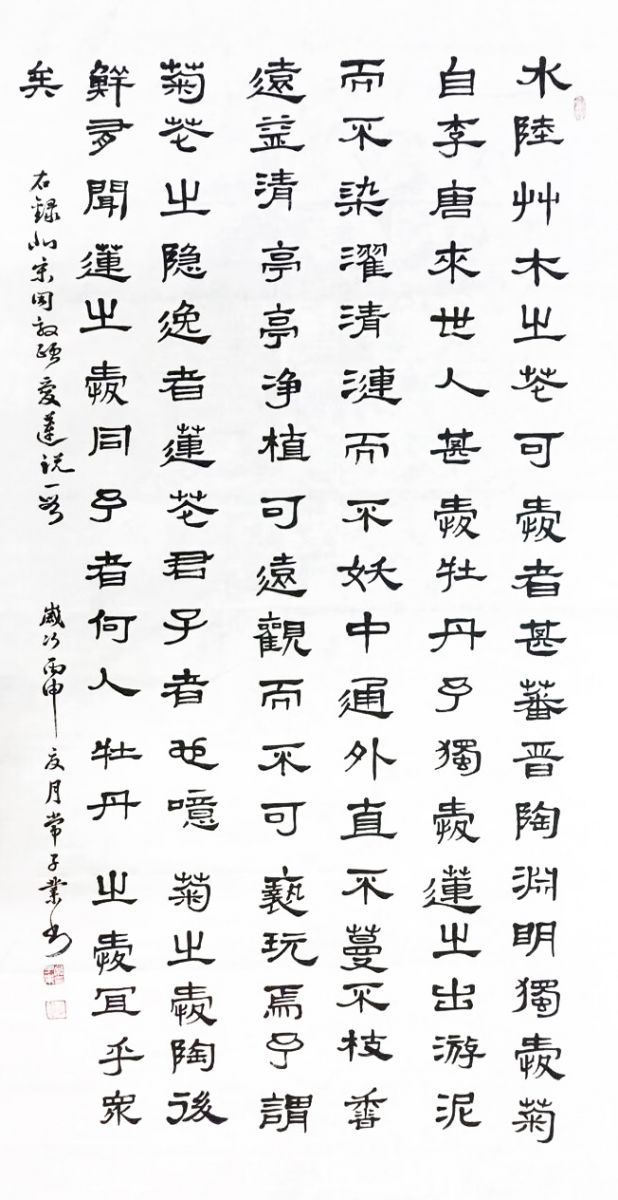 水陸艸木之花可愛者甚蕃晋陶淵明獨愛菊
自李唐來世人甚愛牡丹予獨愛蓮之出游泥
而不染濯清漣而不妖中通外直不蔓不枝香
遠益清亭亭净植可遠觀而不可褻玩焉予謂
菊花之隐逸者蓮花君子者也噫菊之愛陶後
鮮有聞蓮之愛同予者何人牡丹之愛宜乎衆
矣
右録北宋周敦頤愛蓮説一 歲次丙申夏月常子業書